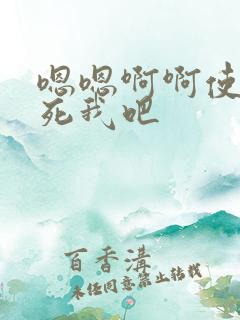 嗯嗯啊啊使
死我吧
百香溝
未经同意禁止转载